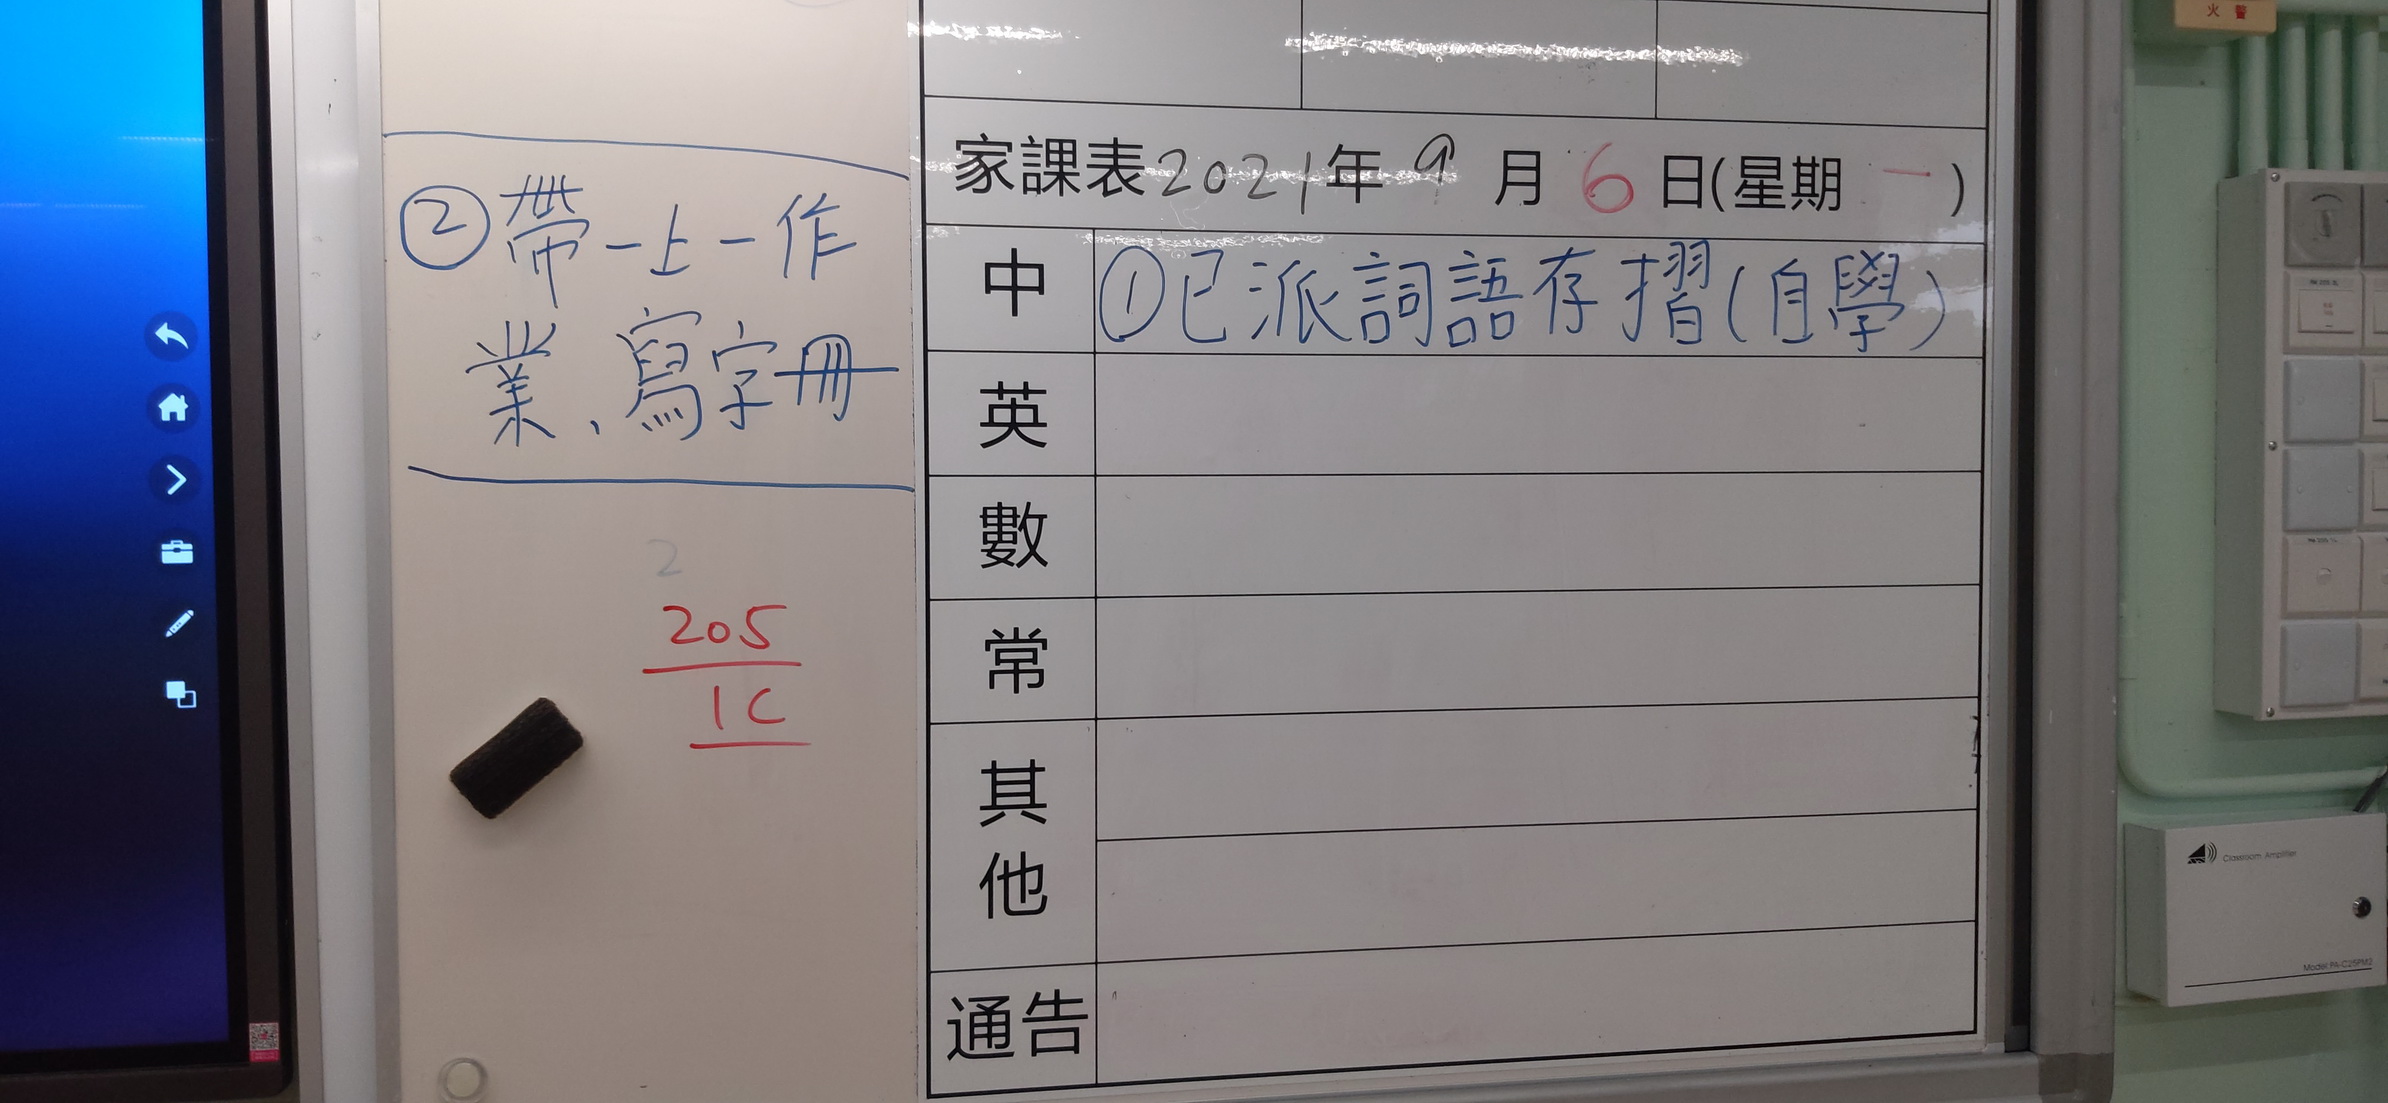 火警
家課表2021年9月6日(星期一)
中 ①已派詞語存摺(自學)
②帶一上一作
業、寫字冊
英
數
常
其他
通告
2
205
1C
Classroom Amplifier
Model: PA-C25PM2